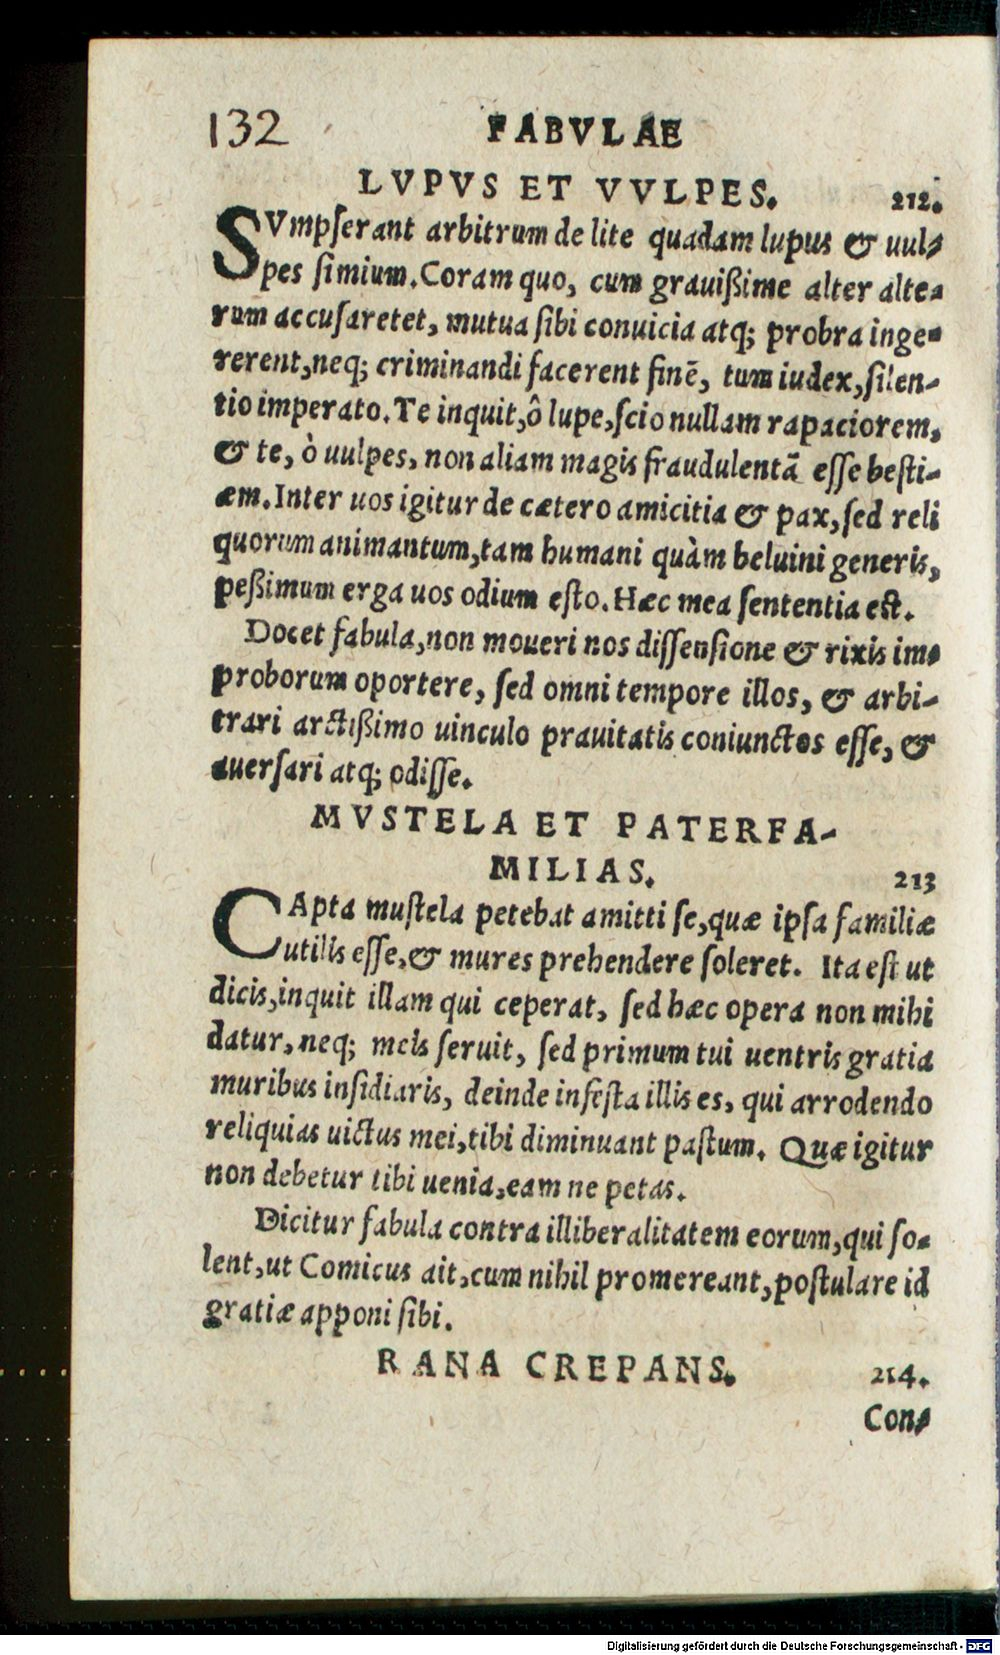 132 FABVLAE
LVPVS ET VVLPES. 212.
SVmpſerant arbitrum de lite quadam lupus & uul-
pes ſimium. Coram quo, cum grauißime alter alte-
rum accuſaretet, mutua ſibi conuicia atq; probra inge-
rerent, neq; criminandi facerent finē, tum iudex, ſilen-
tio imperato. Te inquit, ô lupe, ſcio nullam rapaciorem,
& te, ò uulpes, non aliam magis fraudulentā eſſe beſti-
am. Inter uos igitur de cætero amicitia & pax, ſed reli
quorum animantum, tam humani quàm beluini generis,
peßimum erga uos odium eſto. Hæc mea ſententia eſt.
Docet fabula, non moueri nos diſſenſione & rixis im-
proborum oportere, ſed omni tempore illos, & arbi-
trari arctißimo uinculo prauitatis coniunctos eſſe, &
auerſari atq; odiſſe.
MVSTELA ET PATERFA-
MILIAS. 213
CApta muſtela petebat amitti ſe, quæ ipſa familiæ
utilis eſſe, & mures prehendere ſoleret. Ita eſt ut
dicis, inquit illam qui ceperat, ſed hæc opera non mihi
datur, neq; meis ſeruit, ſed primum tui uentris gratia
muribus inſidiaris, deinde infeſta illis es, qui arrodendo
reliquias uictus mei, tibi diminuant paſtum. Quæ igitur
non debetur tibi uenia, eam ne petas.
Dicitur fabula contra illiberalitatem eorum, qui ſo-
lent, ut Comicus ait, cum nihil promereant, poſtulare id
gratiæ apponi ſibi.
RANA CREPANS. 214.
Con-
Digitalisierung gefördert durch die Deutsche Forschungsgemeinschaft - DFG